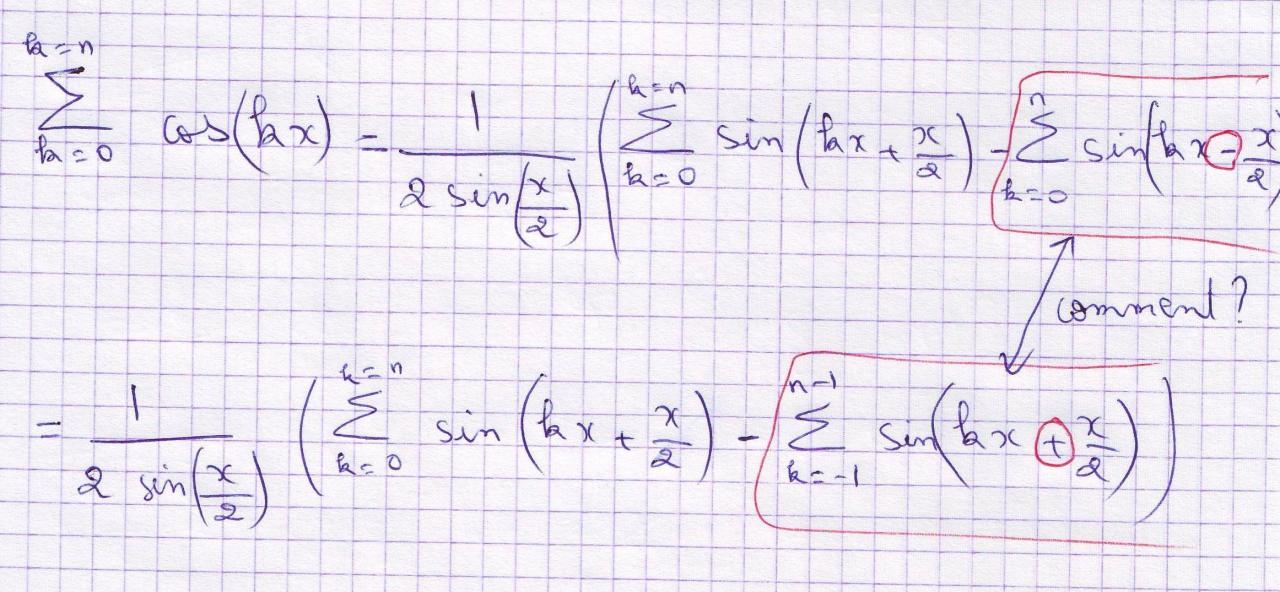 \sum_{k=0}^{k=n} cos(kx) = \frac{1}{2 sin(\frac{x}{2})} ( \sum_{k=0}^{k=n} sin(kx + \frac{x}{2}) - \sum_{k=0}^{n} sin(kx - \frac{x}{2})
comment ?
= \frac{1}{2 sin(\frac{x}{2})} ( \sum_{k=0}^{k=n} sin(kx + \frac{x}{2}) - \sum_{k=-1}^{n-1} sin(kx + \frac{x}{2}) )